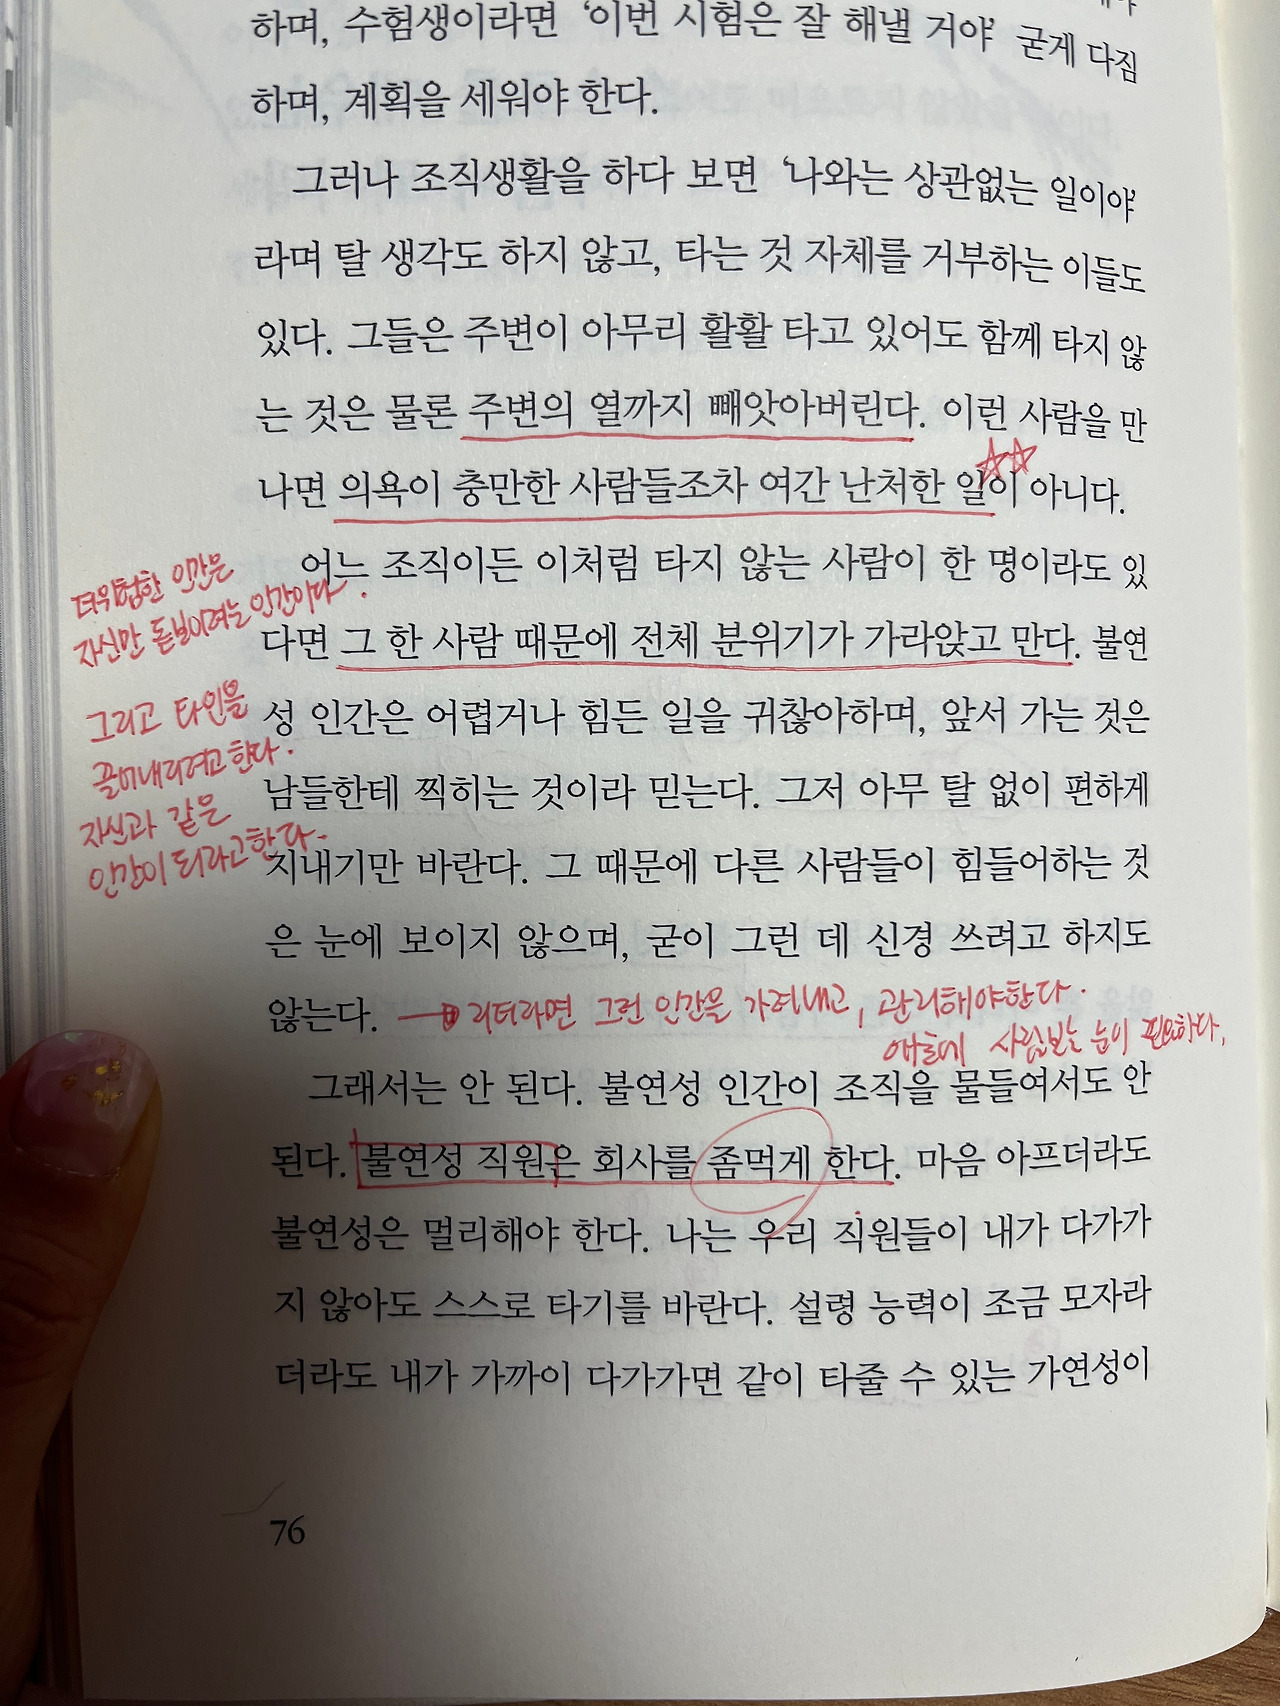 하며, 수험생이라면 ‘이번 시험은 잘 해낼 거야’ 굳게 다짐
하며, 계획을 세워야 한다.
그러나 조직생활을 하다 보면 ‘나와는 상관없는 일이야’
라며 탈 생각도 하지 않고, 타는 것 자체를 거부하는 이들도
있다. 그들은 주변이 아무리 활활 타고 있어도 함께 타지 않
는 것은 물론 주변의 열까지 빼앗아버린다. 이런 사람을 만
나면 의욕이 충만한 사람들조차 여간 난처한 일이 아니다.
어느 조직이든 이처럼 타지 않는 사람이 한 명이라도 있
다면 그 한 사람 때문에 전체 분위기가 가라앉고 만다. 불연
성 인간은 어렵거나 힘든 일을 귀찮아하며, 앞서 가는 것은
남들한테 찍히는 것이라 믿는다. 그저 아무 탈 없이 편하게
지내기만 바란다. 그 때문에 다른 사람들이 힘들어하는 것
은 눈에 보이지 않으며, 굳이 그런 데 신경 쓰려고 하지도
않는다.
더 위험한 인간은
자신만 돋보이려는 인간이다.
그리고 타인을
끌어내리려고 한다.
자신과 같은
인간이 되라고 한다.
리더라면 그런 인간을 가려내고, 관리해야한다.
사람보는 눈이 필요하다.
그래서는 안 된다. 불연성 인간이 조직을 물들여서도 안
된다. 불연성 직원은 회사를 좀먹게 한다. 마음 아프더라도
불연성은 멀리해야 한다. 나는 우리 직원들이 내가 다가가
지 않아도 스스로 타기를 바란다. 설령 능력이 조금 모자라
더라도 내가 가까이 다가가면 같이 타줄 수 있는 가연성이
76